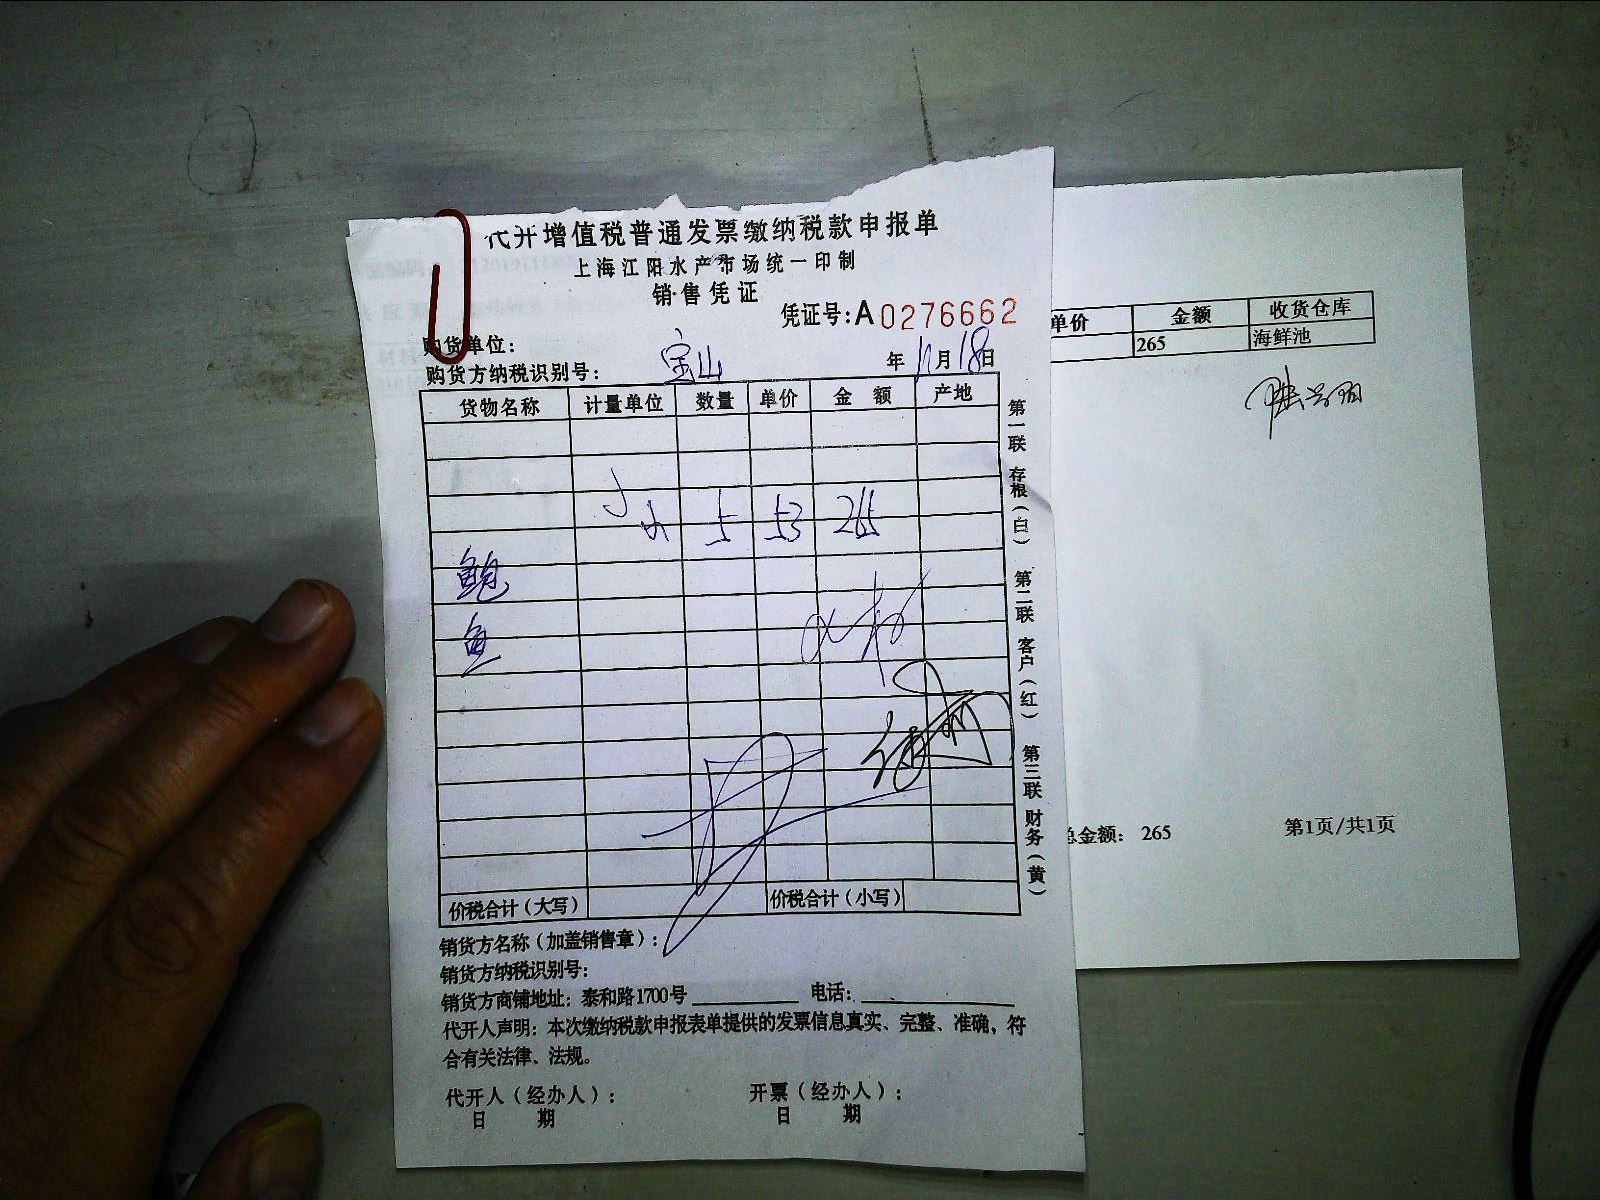 代开增值税普通发票缴纳税款申报单
上海江阳水产市场统一印制
销售凭证
凭证号:A0276662
购货单位:
购货方纳税识别号: 宝山 年 11月18日
货物名称 计量单位 数量 单价 金额 产地
5 53 265
鲍
鱼
价税合计(大写) 价税合计(小写)
销货方名称(加盖销售章):
销货方纳税识别号:
销货方商铺地址: 泰和路1700号 电话:
代开人声明: 本次缴纳税款申报表单提供的发票信息真实、完整、准确,符
合有关法律、法规。
代开人(经办人): 开票(经办人):
日 期 日 期
第一联 存根(白) 第二联 客户(红) 第三联 财务(黄)
单价 金额 收货仓库
265 海鲜池
总金额: 265 第1页/共1页